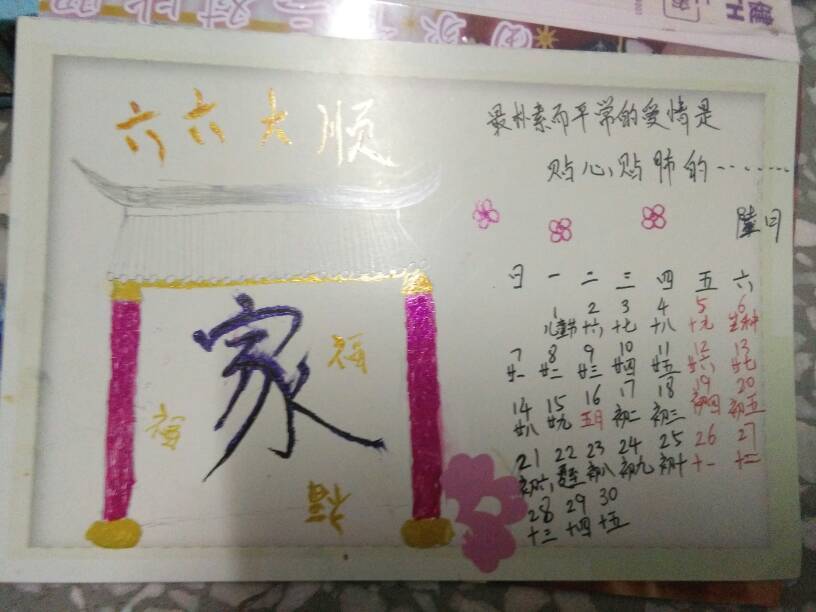 六六大顺
最朴素而平常的爱情是
贴心贴肺的……
陆月
家
福
福
福
日 一 二 三 四 五 六
1 2 3 4 5 6
儿童节 十六 十七 十八 十九 芒种
7 8 9 10 11 12 13
廿一 廿二 廿三 廿四 廿五 廿六 廿七
14 15 16 17 18 19 20
廿八 廿九 五月 初二 初三 初四 初五
21 22 23 24 25 26 27
初六 夏至 初八 初九 初十 十一 十二
28 29 30
十三 十四 十五
健
TH